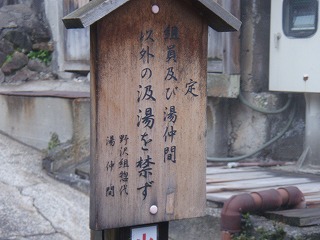 定
組員及び湯仲間
以外の汲湯を禁ず
野沢組惣代
湯仲間